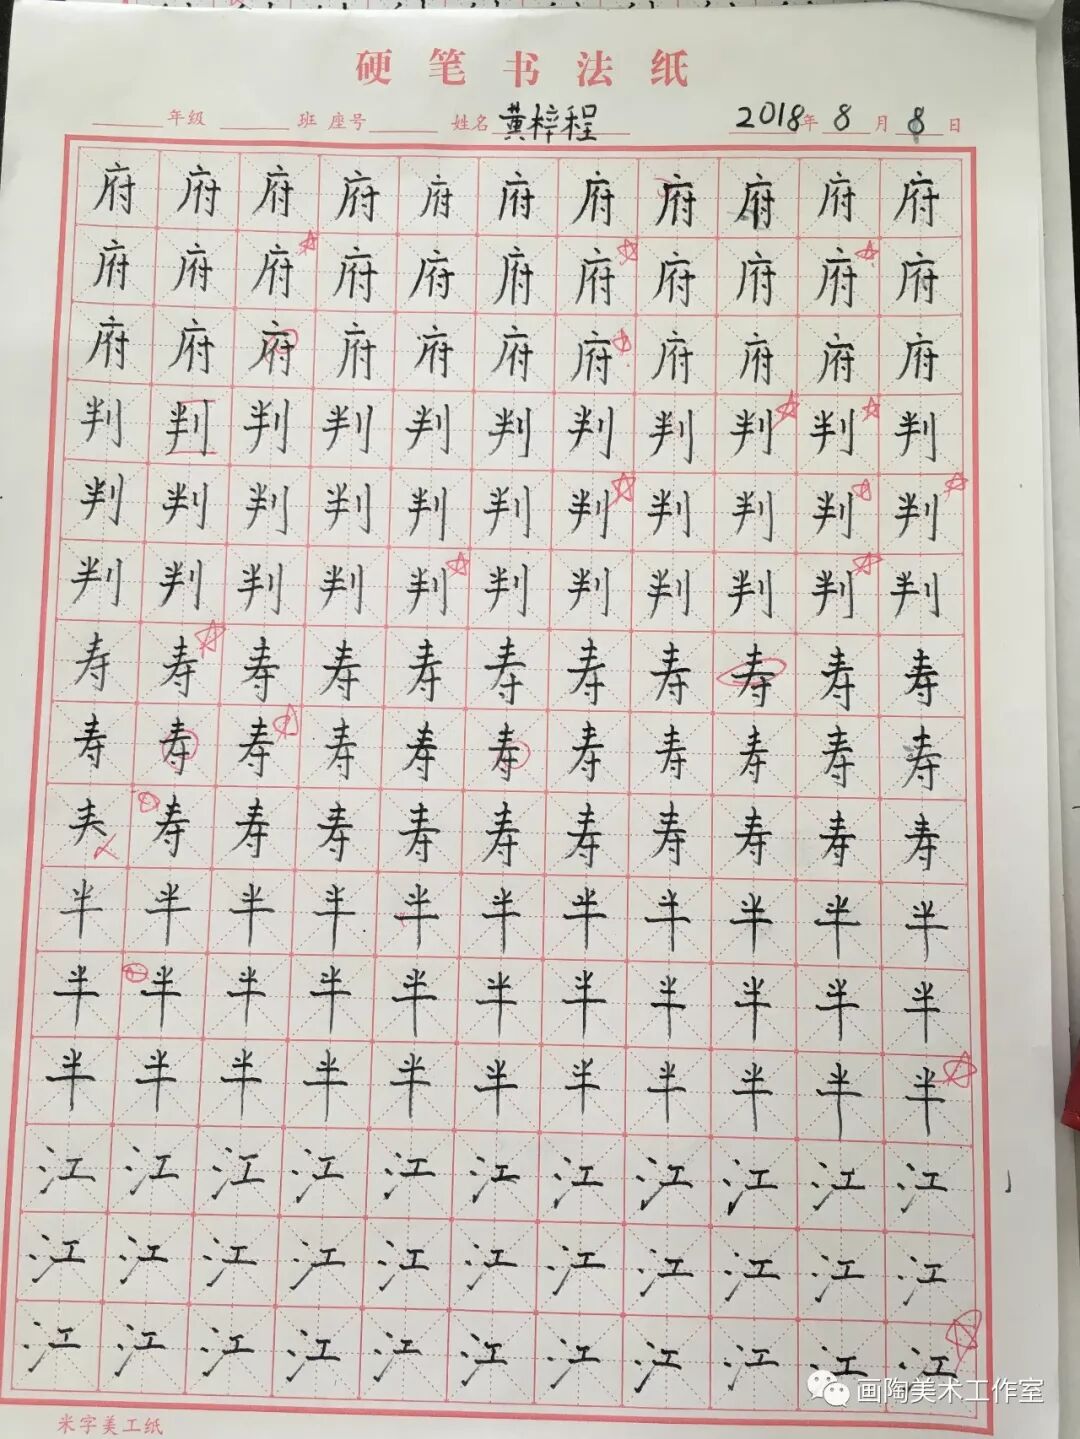 硬笔书法纸
年级 班 座号 姓名 黄梓程 2018年 8 月 8 日
府府府府府府府府府府府
府府府府府府府府府府府
府府府府府府府府府府府
判判判判判判判判判判判
判判判判判判判判判判判
判判判判判判判判判判判
寿寿寿寿寿寿寿寿寿寿寿
寿寿寿寿寿寿寿寿寿寿寿
寿寿寿寿寿寿寿寿寿寿
半半半半半半半半半半半
半半半半半半半半半半半
半半半半半半半半半半半
江江江江江江江江江江江
江江江江江江江江江江江
江江江江江江江江江江江
米字美工纸
画陶美术工作室